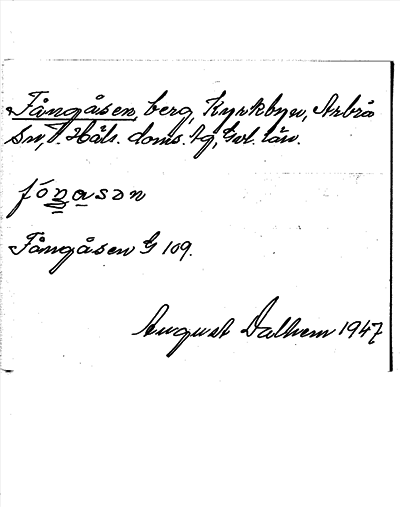 Fångåsen, berg, Kyrkbyn, Arbrå
Sn, V. Häls. doms. tg, Gvl. län.
fóŋasən
Fångåsen G 109.
August Dalhem 1947